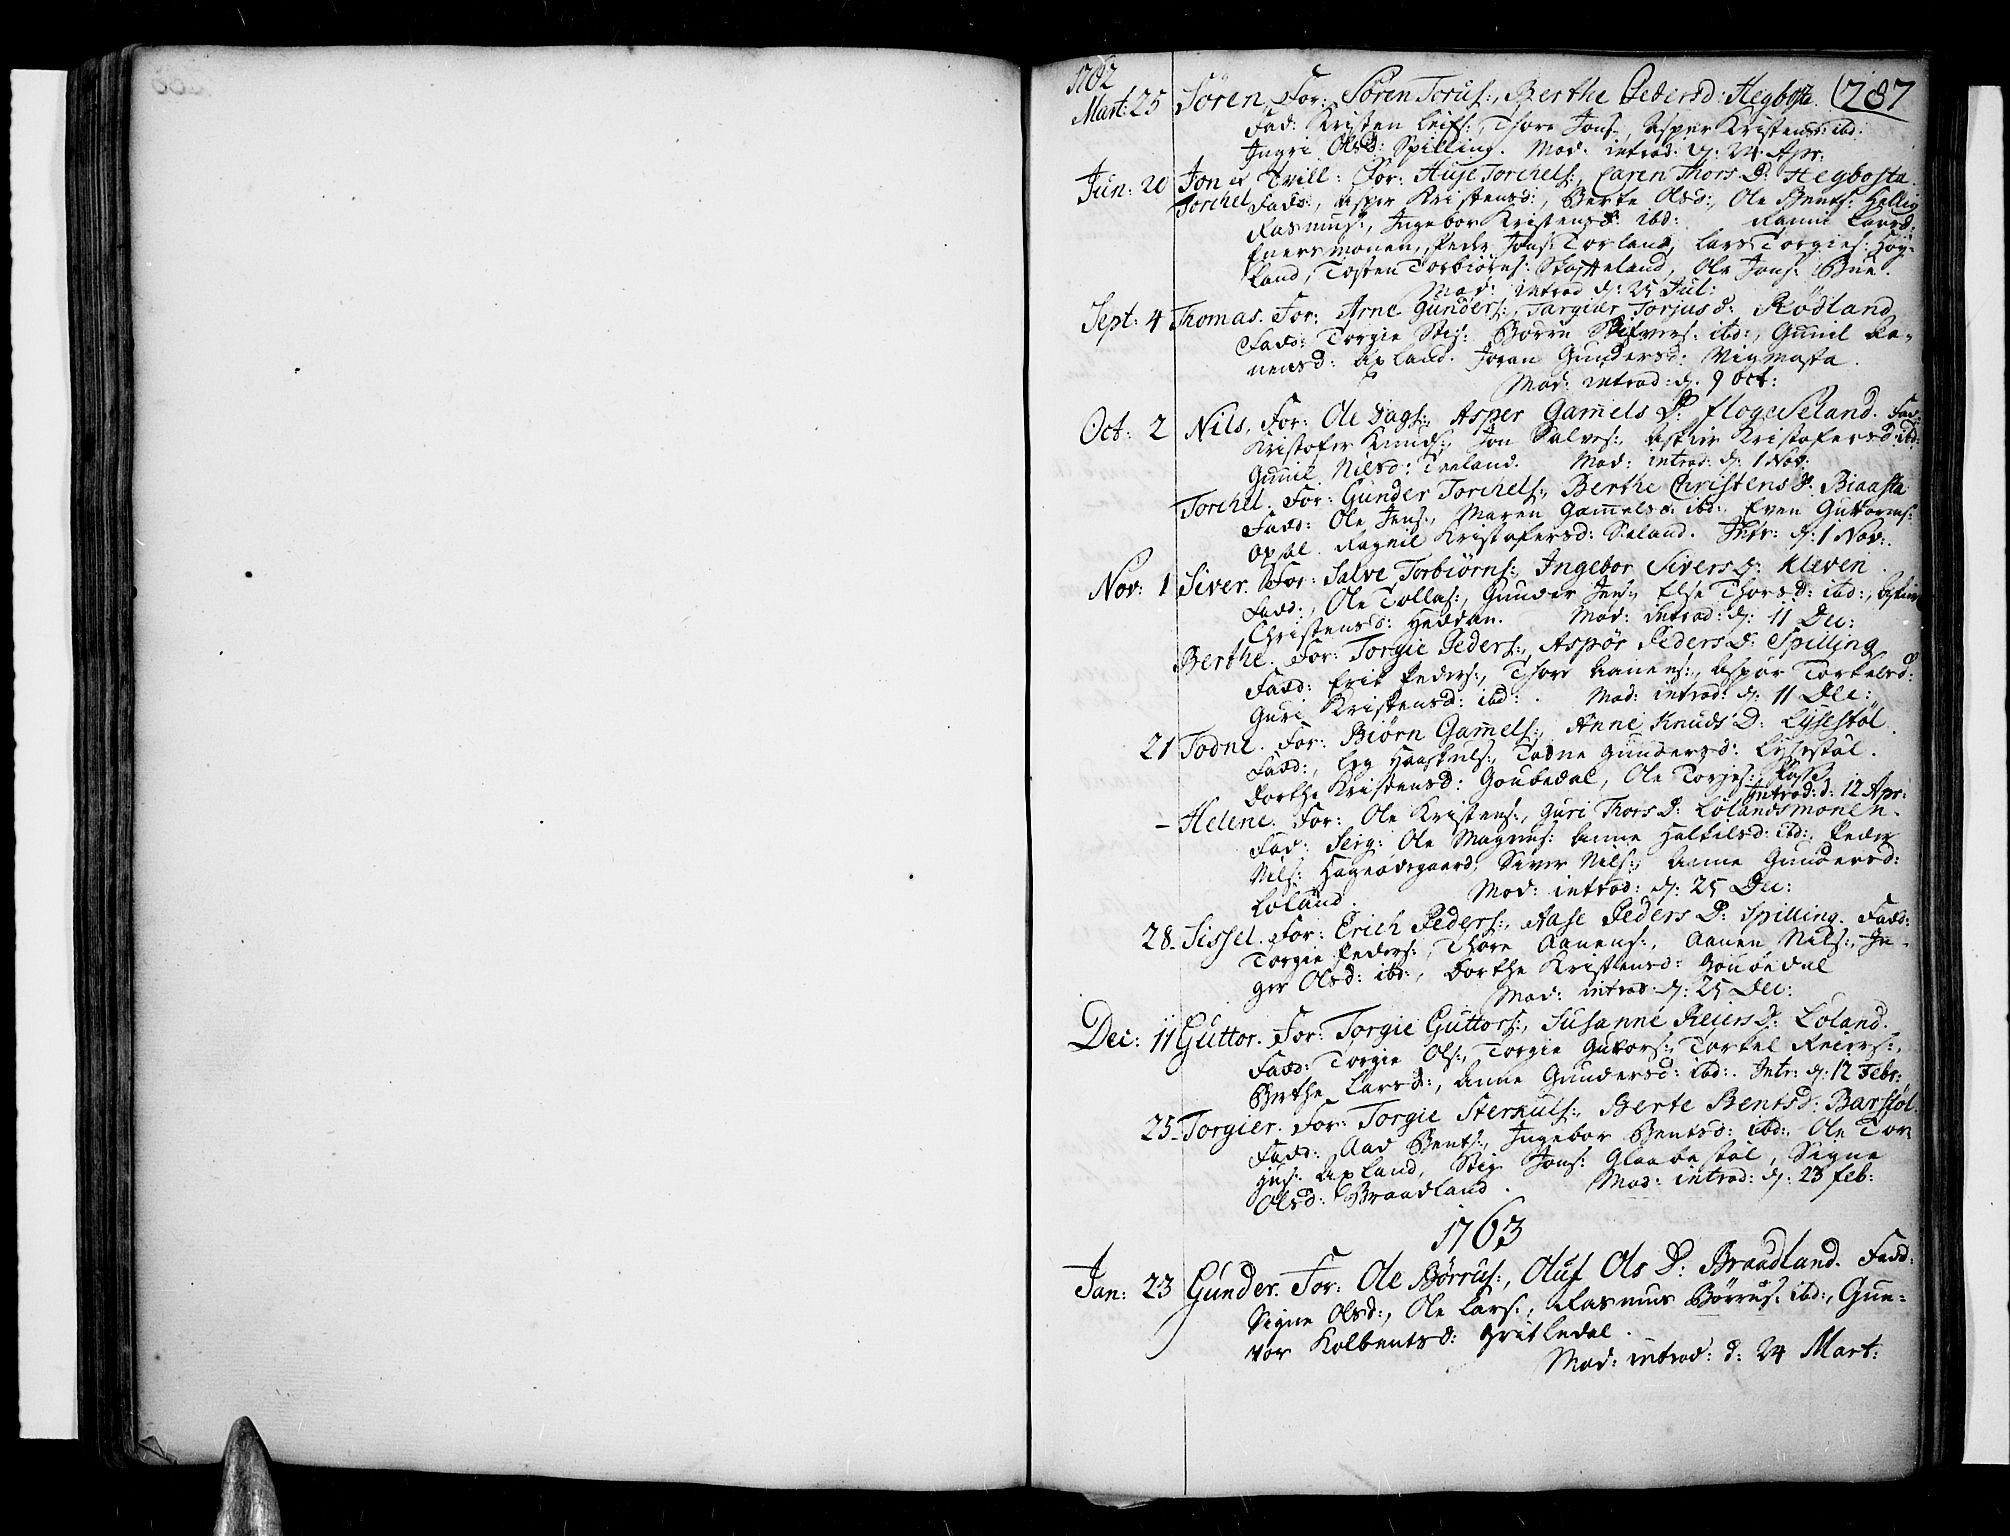 1762
Mart: 25 Sören, For: Sören Torus:, Berthe Pedersd: Hegbosta. 287
Fad: Kristen Leifs:, Thore Jons:, Asper Kristensd: ibd:
Ingri Olsd: Spilling. Mod: introd: d: 24 Apr:
Jun: 20 Jon et Tvill: For: Auje Torchels:, Caren Thors D: Hegbosta.
Torchel Fadd:, Asper Kristensd:, Berte Olsd:, Ole Bents:
Rasmus:, Ingebor Kristensd: ibd: Larsd:
Enersmonen, Peder Jons: Torland, Lars Torgies: Høy-
land, Tosten Torbiörns: Skofteland, Ole Jons: Bue.
Mod: introd d: 25 Jul:
Sept: 4 Thomas. For: Arne Gunders:, Targier Torjusd: Rödland
Fadd: Torgie Stis: Borre Sifvers: ibd:, Gunil Aa-
nensd: Apland. Joran Gundersd: Vigmosta.
Mod: introd: d. 9 Oct:
Oct: 2 Nils, For: Ole Dags:, Asper Gamels D: Seland. Fad:
Kristofer Knuds:, Jon Salves:, Kristofersd: ibd:
Gunil Nilsd: Treland. Mod: introd: d: 1 Nov:
Torchel. For: Gunder Torchels:, Berthe Christens D: Biaasta
Fadd: Ole Jens:, Maren Gamelsd: ibd:, Even Guttorms:
Opsal. Ragnil Kristofersd: Seland. Intr: d: 1 Nov:
Nov: 1 Siver. For: Salve Torbiörns:, Ingebor Sivers D: Kleven.
Fadd:, Ole Tollas:, Gunder Jens:, Else Thorsd: ibd:,
Christensd: Heddan. Mod: introd: d: 11 Dec:
Berthe. For: Torgie Peders:, Aspör Peders D: Spilling
Fadd: Erik Peders:, Thore Aanens:, Aspör Torkelsd:
Guri Kristensd: ibd: . Mod: introd: d: 11 Dec:
21 Todne. For: Biörn Gamels:, Anne Knuds D: Lysestöl.
Fadd:, Haaskuls:, Todne Gundersd: Lysestöl.
Dorthe Kristensd: Goubedal, Ole Torjes:
Introd: d: 12 Apr:
- Helene. For: Ole Kristens:, Guri Thors D: Lölandsmonen.
Fad: Serg: Ole Magnus: Anne Halkelsd: ibd:, Peder
Nils: Hageødegaard, Siver Nils:, Anne Gundersd:
Löland. Mod: introd: d: 25 Dec:
28- Sissel. For: Erich Peders:, Aase Peders D: Spilling. Fadd:
Torgie Peders:, Thore Aanens:, Aanen Nils:, In-
ger Olsd: ibd:, Dorthe Kristensd: Goubedal
Mod: introd: d: 25 Dec:
Dec: 11 Guttor. For: Torgie Guttors:, Susanne Reiers D: Löland.
Fadd: Torgie Ols:, Torgie Guttors:, Torkel Reiers:,
Berthe Larsd:, Anne Gundersd: ibd:. Intr: d: 12 Febr:
25- Torgier. For: Torgie Sterkuls:, Berte Bentsd: Barstöl.
Fadd: Aad Bents:, Ingebor Bentsd: ibd:, Ole Tor-
kus: Apland, Stig Jons: Glaabestöl, Signe
Olsd: Braadland. Mod: introd: d: 23 Feb:
1763
Jan: 23 Gunder. For: Ole Börrus:, Oluf Ols D: Braadland. Fadd:
Signe Olsd:, Ole Lars:, Rasmus Börrus: ibd:, Gun-
vor Kolbentsd: Gritledal.
Mod: introd: d: 24 Mart: